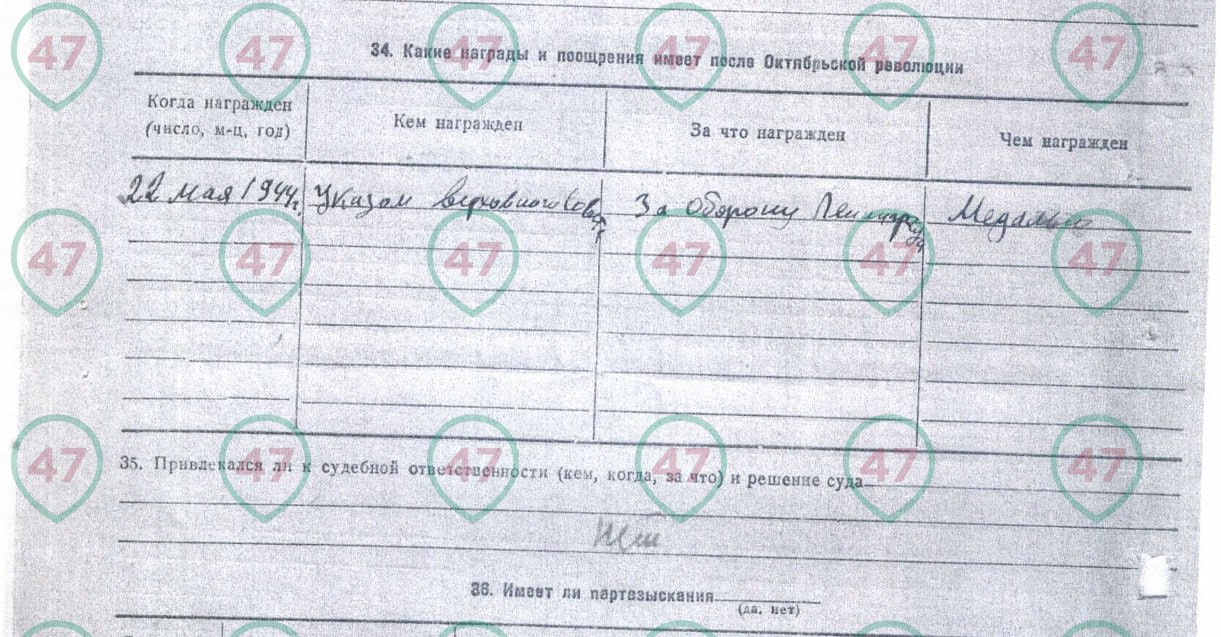 34. Какие награды и поощрения имеет после Октябрьской революции
Когда награжден (число, м-ц, год)
Кем награжден
За что награжден
Чем награжден
22 мая 1944 г. Указом верховного Совета За оборону Ленинграда Медалью
35. Привлекался ли к судебной ответственности (кем, когда, за что) и решение суда
Нет
36. Имеет ли партвзыскания
(да, нет)
47 47 47 47 47 47
47 47 47 47 47 47
47 47 47 47 47 47